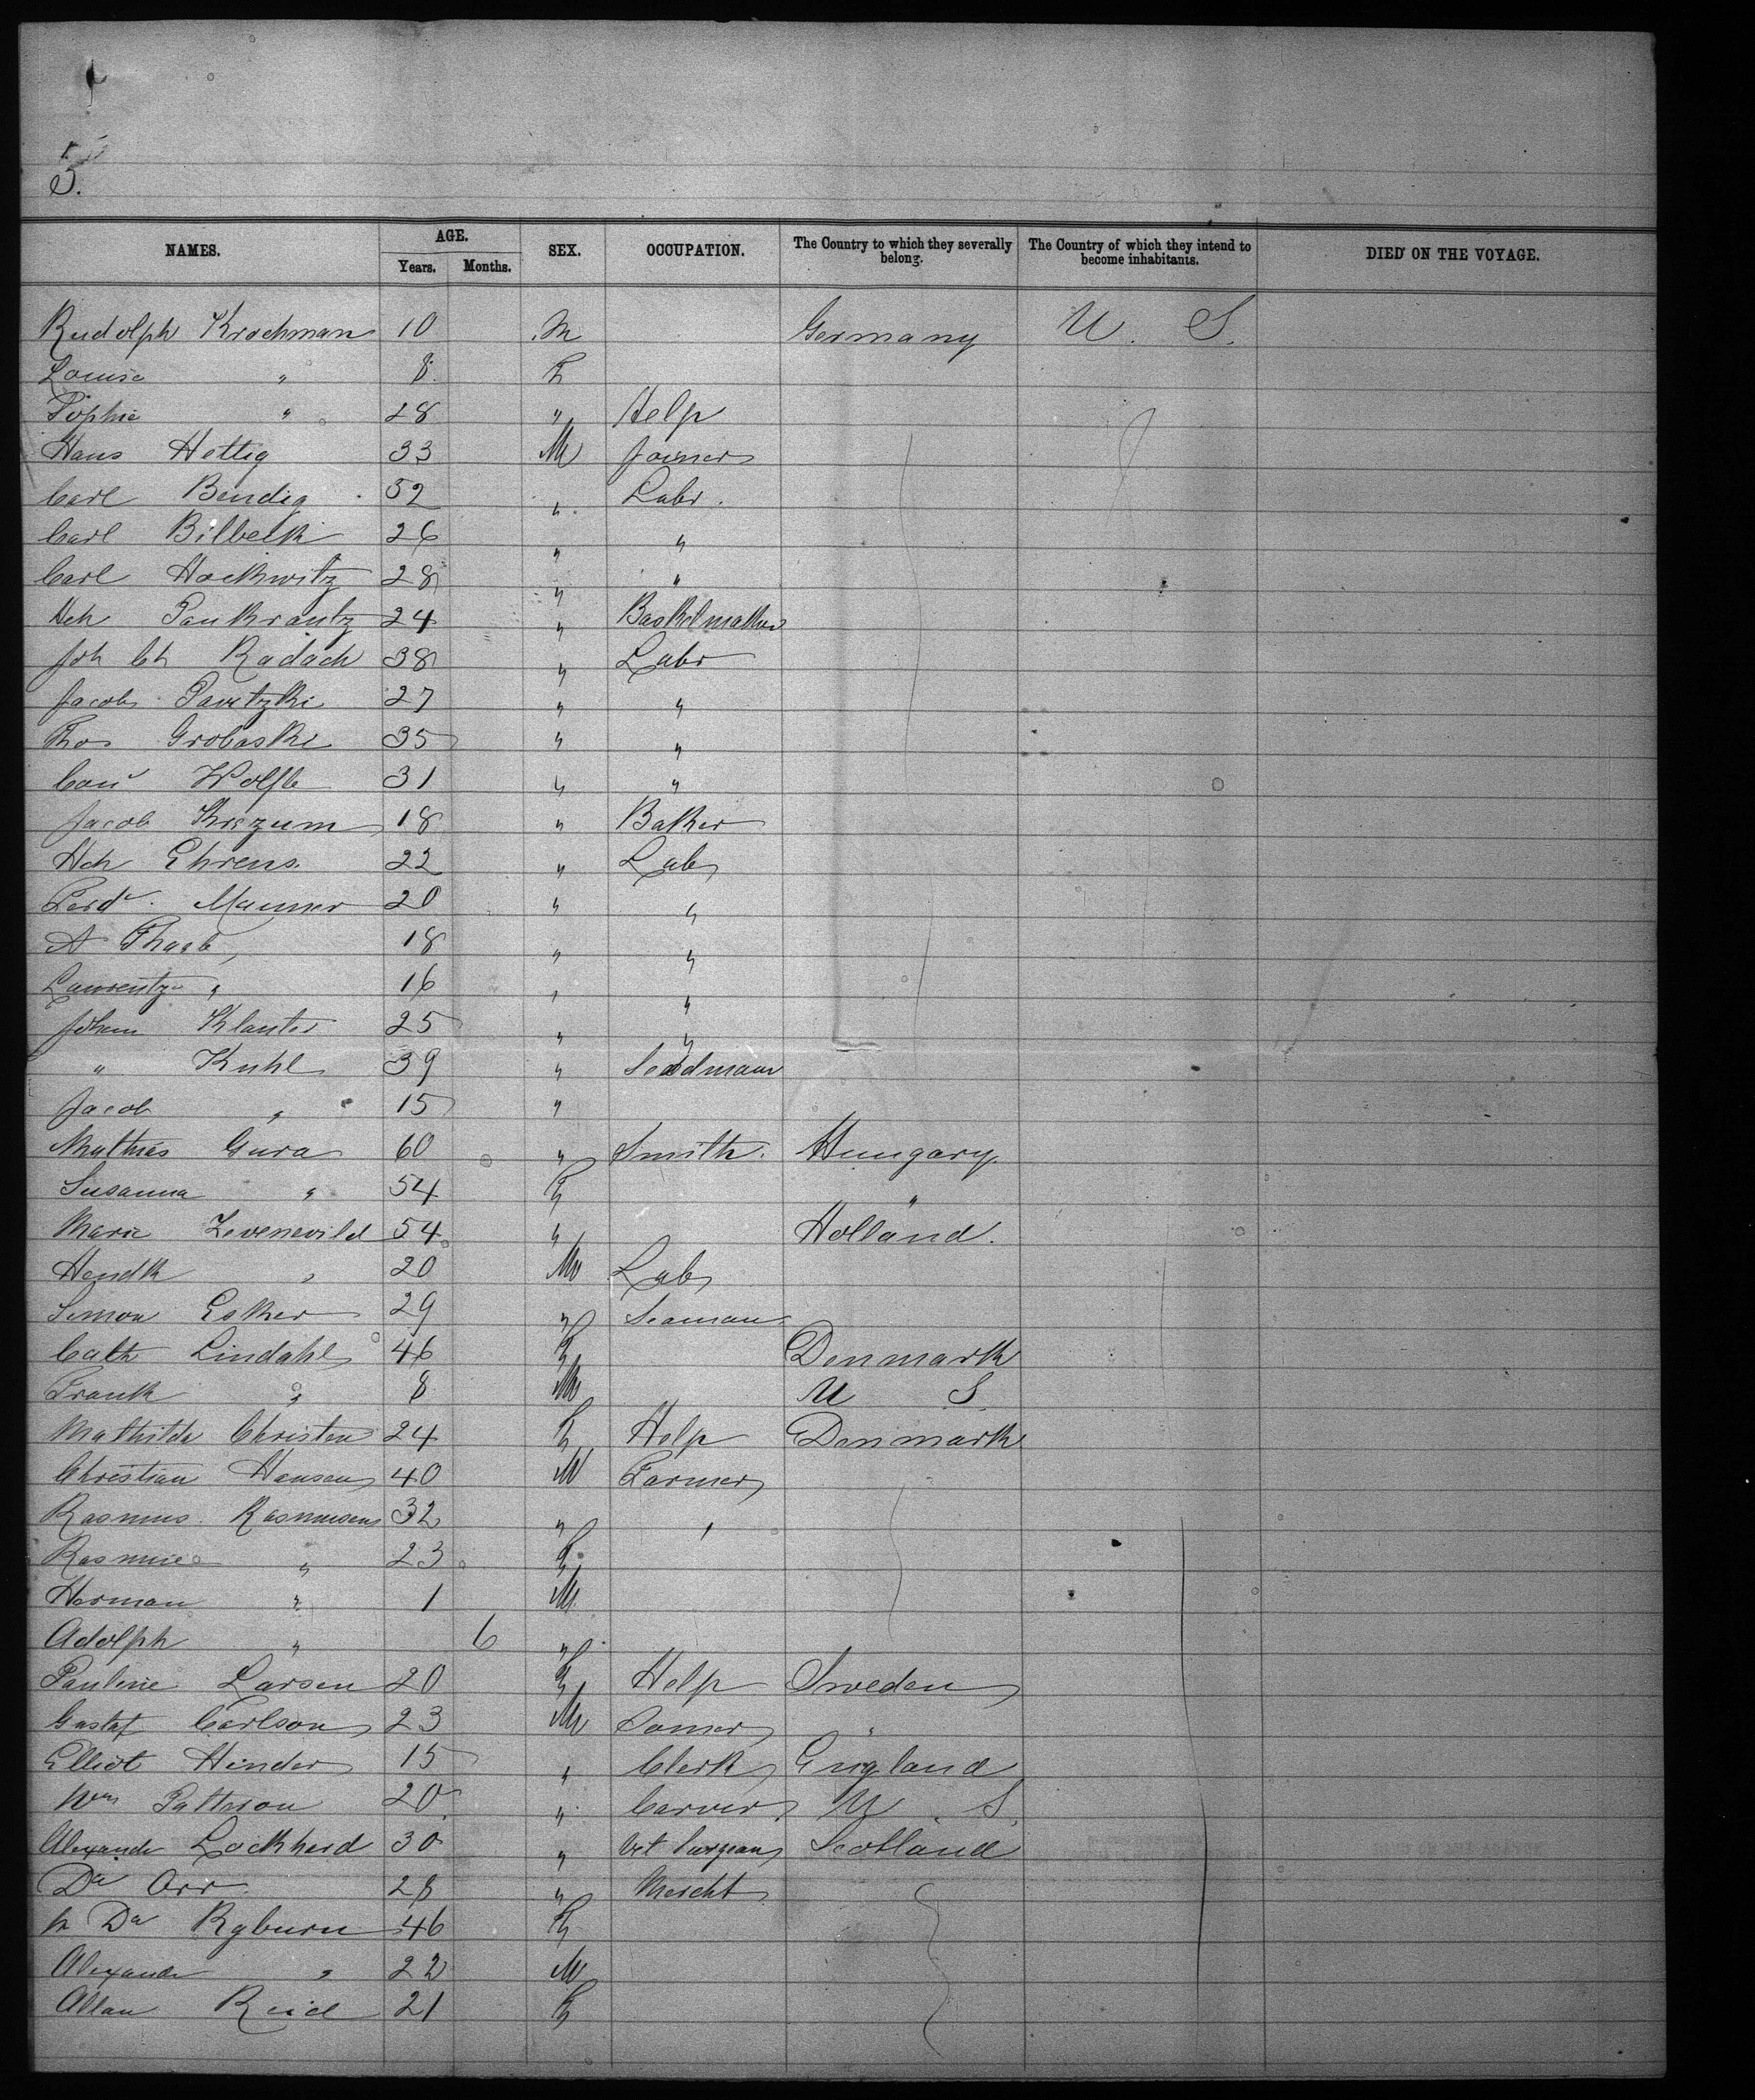 5.
NAMES. AGE. SEX. OCCUPATION. The Country to which they severally belong. The Country of which they intend to become inhabitants. DIED ON THE VOYAGE.
Years. Months.
Rudolph Krochman 10 M Germany U. S.
Louise " 8 F
Sophie " 28 " Help
Hans Hettig 33 M Joiner
Carl Bendig 52 " Labr.
Carl Bilbelk 26 " "
Carl Hackwitz 28 " "
Hch Pankrantz 24 " Basketmaker
Joh Ch Radach 38 " Labr
Jacob 27 " "
Thos Grobaski 35 " "
Wolfle 31 " "
Jacob Krszum 18 " Baker
Hch Ehrens. 22 " Labr
Ferd. 20 " "
A 18 " "
Laurentz " 16 " "
Johann Klanter 25 " "
" Kuhl 39 "
Jacob " 15 "
Mathias Gura 60 " Smith. Hungary
Susanna " 54 F "
Marie Zevenevild 54 " Holland.
Hendk " 20 M Labr
Simon Esker 29 " Seaman
Cath Lindahl 46 F Denmark
Frank " 8 M U S
Mathilde Christen 24 F Help Denmark
Christian Hansen 40 M Farmer
Rasmus Rasmusen 32 " "
Rasmine " 23 F
Herman " 1 M
Adolph " 6 "
Pauline Larsen 20 F Help Sweden
Gustaf Carlson 23 M "
Elliot Hinder 15 " Clerk England
Wm Patterson 20 " Carver U. S.
Alexander Lockherd 30 " Vet Surgeon Scotland
Da Orr 28 " Mercht
Da Ryburn 46 F
Alexander " 22 M
Allan Reid 21 F